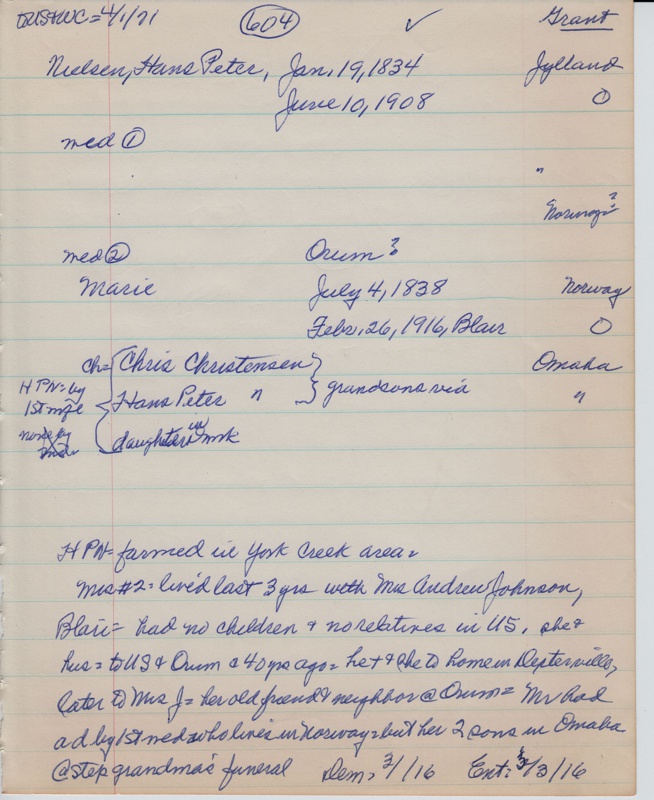 to US & WC = 4/1/71 604 ✓ Grant
Nielsen, Hans Peter, Jan, 19, 1834 Jylland
June 10, 1908 O
med ①
"
Norway?
med ② Orum?
Marie July 4, 1838 Norway
Febr, 26, 1916, Blair O
ch = Chris Christensen Omaha
HPN = by Hans Peter " grandsons via "
1st mge
none by daughter in mk
2nd
HPN = farmed in York Creek area =
Mrs #2 = lived last 3 yrs with Mrs Andrew Johnson,
Blair = had no children & no relatives in US, she &
hus = to US & Orum c 40 yrs ago = he & she to home in
later to Mrs J = her old friend & neighbor @ Orum = Mr had
a d by 1st med who lives in Norway = but her 2 sons in Omaha
@ step grandma's funeral Dem, 3/1/16 Ent: 3/3/16